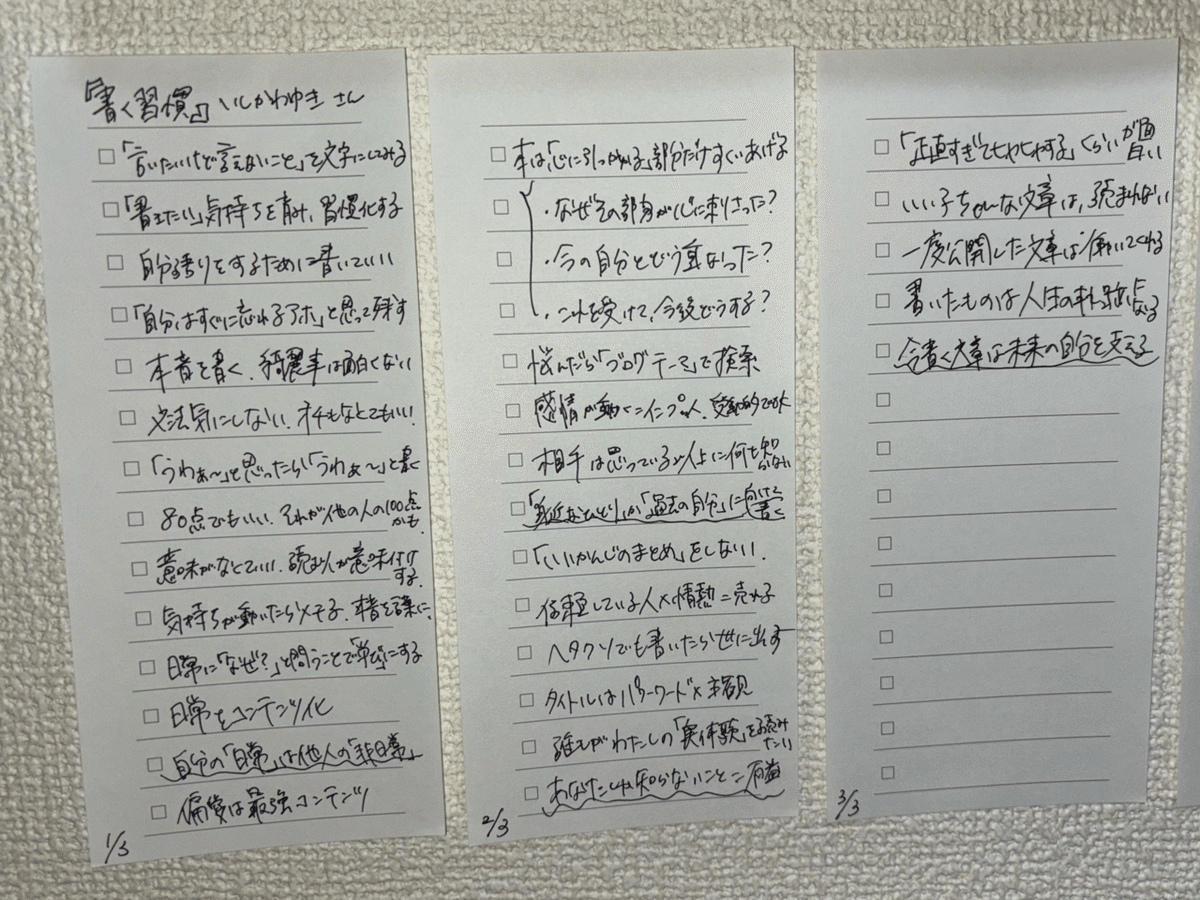 『書く習慣』 いしかわゆき さん
「言いたいけど言えないこと」を文字にしてみる
「書きたい」気持ちを育み、習慣化する
自分語りをするために書いていい
「自分はすぐに忘れるアホ」と思って残す
本音を書く、綺麗事は面白くない
文法気にしない、オチもなくてもいい！
「うわぁ〜」と思ったら「うわぁ〜」と書く
80点でもいい、それが他の人の100点かも.
意味がなくていい、読む人が意味付けする.
気持ちが動いたらメモる、本音を言葉に.
日常に「なぜ？」と問うことで「学び」にする
日常をコンテンツ化
自分の「日常」は他人の「非日常」
偏愛は最強コンテンツ
1/3
本は「心に引っかかる」部分だけすくいあげる
・なぜその部分が心に刺さった？
・今の自分とどう重なった？
・これを受けて、今後どうする？
悩んだら「ブログ テーマ」で検索
感情が動く＝インプット、
相手は思っている以上に何も知らない
「身近なひとり」か「過去の自分」に向けて書く
「いいかんじのまとめ」をしない.
信頼している人×情熱＝売れる
ヘタクソでも書いたら世に出す
タイトルはパワーワード×主観
誰もがわたしの「実体験」を読みたい
あなたしか知らないこと＝有益
2/3
「正直すぎてヒヤヒヤする」くらいが面白い
いい子ちゃんな文章は、読まれない
一度公開した文章は働いてくれる
書いたものは人生の軌跡になる
今書く文章は未来の自分を支える
3/3